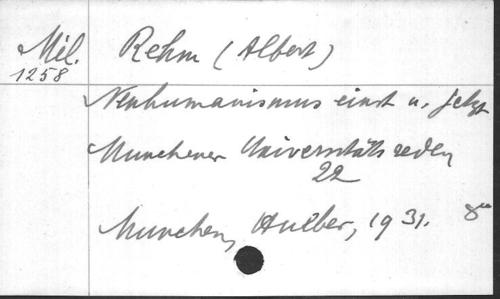 Mil. Rehm (Albert)
1258
Neuhumanismus einst u. jetzt
Munchener Universitäts reden
22
Munchen, Hueber, 1931. 8°